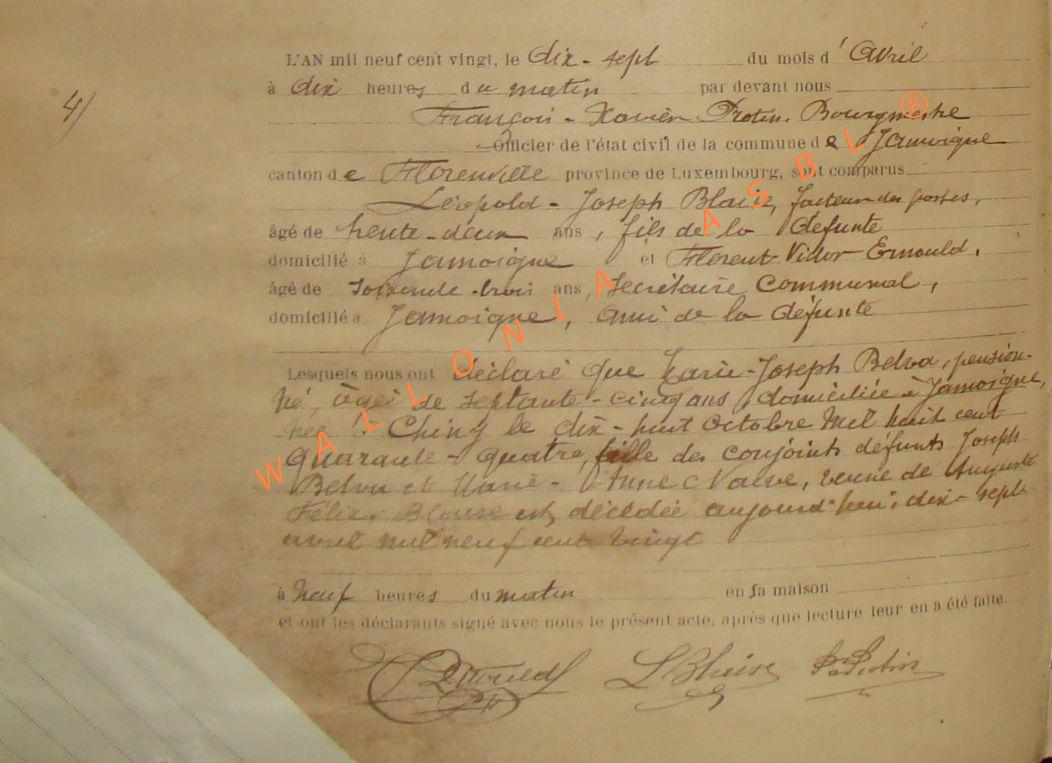 4)
L'AN mil neuf cent vingt, le dix-sept du mois d'Avril
à dix heures du matin par devant nous
François-Xavier Protin, Bourgmestre
Officier de l'état civil de la commune de Jamoigne
canton de Florenville province de Luxembourg, sont comparus
Léopold-Joseph Blaise, facteur des postes,
âgé de trente-deux ans, fils de la défunte
domicilié à Jamoigne et Florent Victor Ernould,
âgé de soixante-trois ans, Secrétaire Communal,
domicilié à Jamoigne, ami de la défunte
Lesquels nous ont déclaré que Marie-Joseph Belva, pension-
né, âgée de septante-cinq ans domiciliée à Jamoigne,
née à Chiny le dix-huit Octobre mil huit cent
quarante-quatre, fille des conjoints défunts Joseph
Belva et Marie-Anne Nalve, veuve de Auguste
Félix Blaise est décédée aujourd'hui dix-sept
avril mil neuf cent vingt
à neuf heures du matin en sa maison
et ont les déclarants signé avec nous le présent acte, après que lecture leur en a été faite.
Ernould L Blaise Protin
WALLONIA ASBL ®